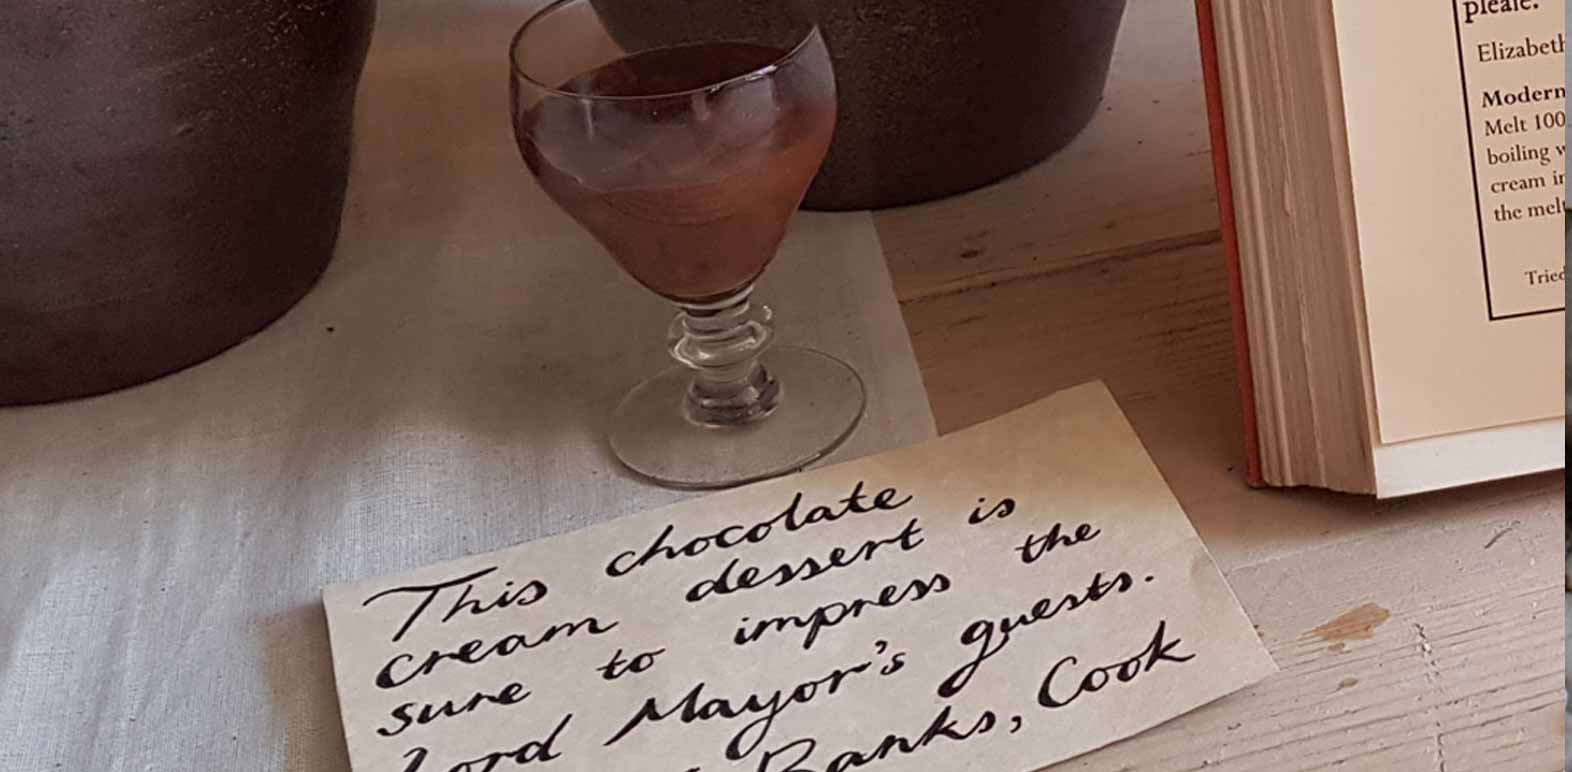 This chocolate
cream dessert is
sure to impress the
Lord Mayor's guests.
Banks, Cook
pleaſe.
Elizabeth
Modern
Melt 100
boiling
cream
the
Tried